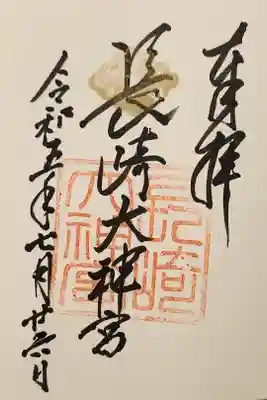 奉拝
長崎大神宮
令和五年七月廿六日
長崎大神宮